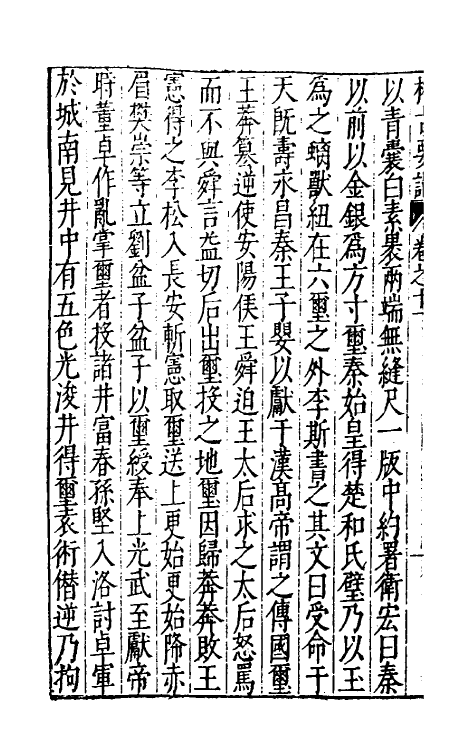 以青囊白素裹兩端無縫尺一版中約署衛宏曰秦
以前以金銀爲方寸璽秦始皇得楚和氏璧乃以玉
爲之螭獸紐在六璽之外李斯書之其文曰受命于
天既壽永昌秦王子嬰以獻于漢髙帝謂之傳國璽
王莽簒逆使安陽侯王舜迫王太后求之太后怒罵
而不與舜言益切后出璽投之地璽因歸莽莽敗王
憲得之李松入長安斬憲取璽送上更始更始降赤
眉樊崇等立劉盆子盆子以璽綬奉上光武至獻帝
時董卓作亂掌璽者投諸井富春孫堅入洛討卓軍
於城南見井中有五色光浚井得璽袁術僭逆乃拘